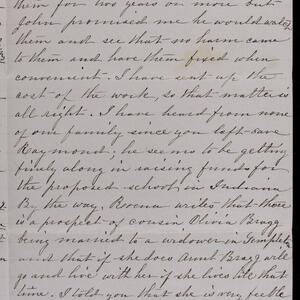 them for two years or more but
John promised me he would watch
them and see that no harm came
to them and have them fixed when
convenient. I have sent up the
cost of the work, so that matter is
all right. I have heard from none
of our family since you left save
Raymond: he seems to be getting
finely along in raising funds for
the proposed school in Indiana
By the way, Rowena writes that there
is a prospect of cousin Olivia Bragg
being married to a widower in Templeton
and that if she does Aunt Bragg will
go and live with her if she lives till that
time. I told you that she is very feeble